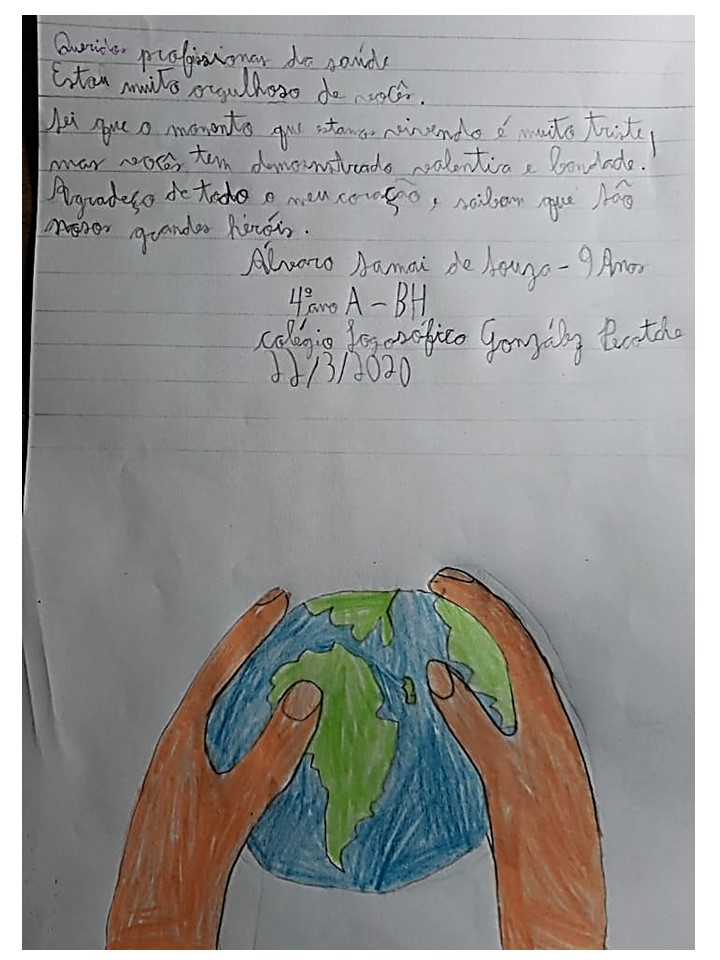 Queridos profissionais da saúde
Estou muito orgulhoso de vocês.
Sei que o momento que estamos vivendo é muito triste,
mas vocês tem demonstrado valentia e bondade.
Agradeço de todo o meu coração, saibam que são
nosos grandes heróis.
Álvaro Samai de Souza - 9 Anos
4º ano A - BH
Colégio Logosófico González Pecotche
22/3/2020